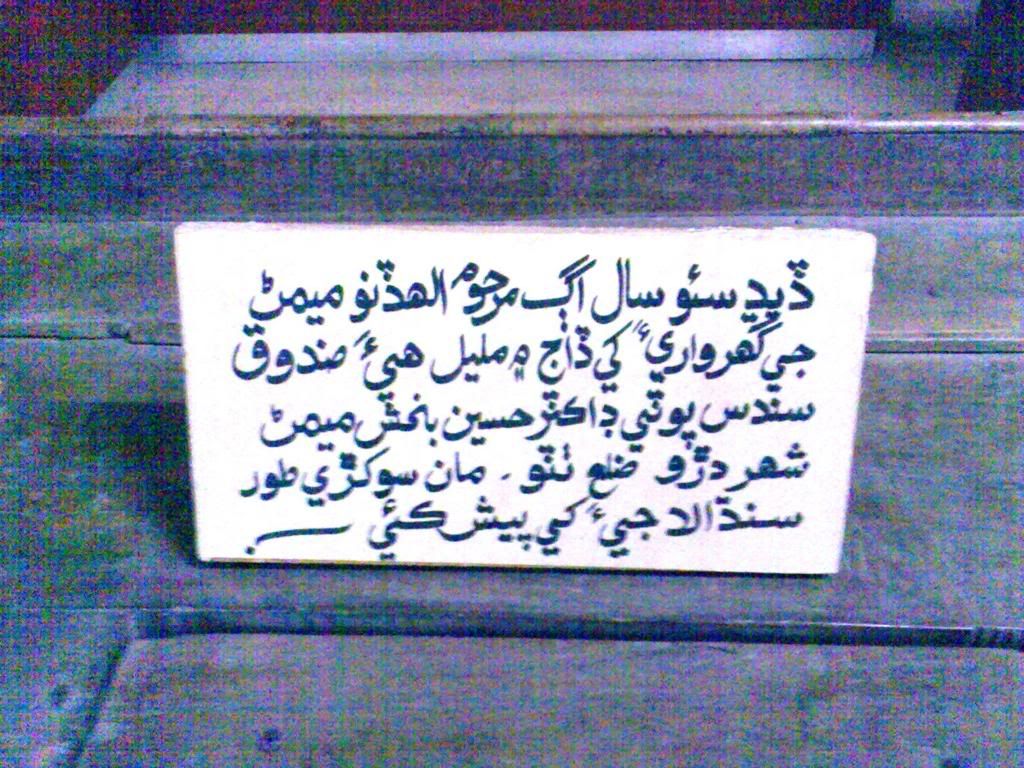 ڏيڍ سئو سال اڳ مرحوم الهڏنو ميمڻ
جي گهرواريءَ کي ڏاج ۾ مليل هيءَ صندوق
سندس پوٽي ڊاڪٽر حسين بخش ميمڻ
شهر دڙو ضلع ٺٽو۔ مان سوکڙي طور
سنڌالاجيءَ کي پيش ڪئي